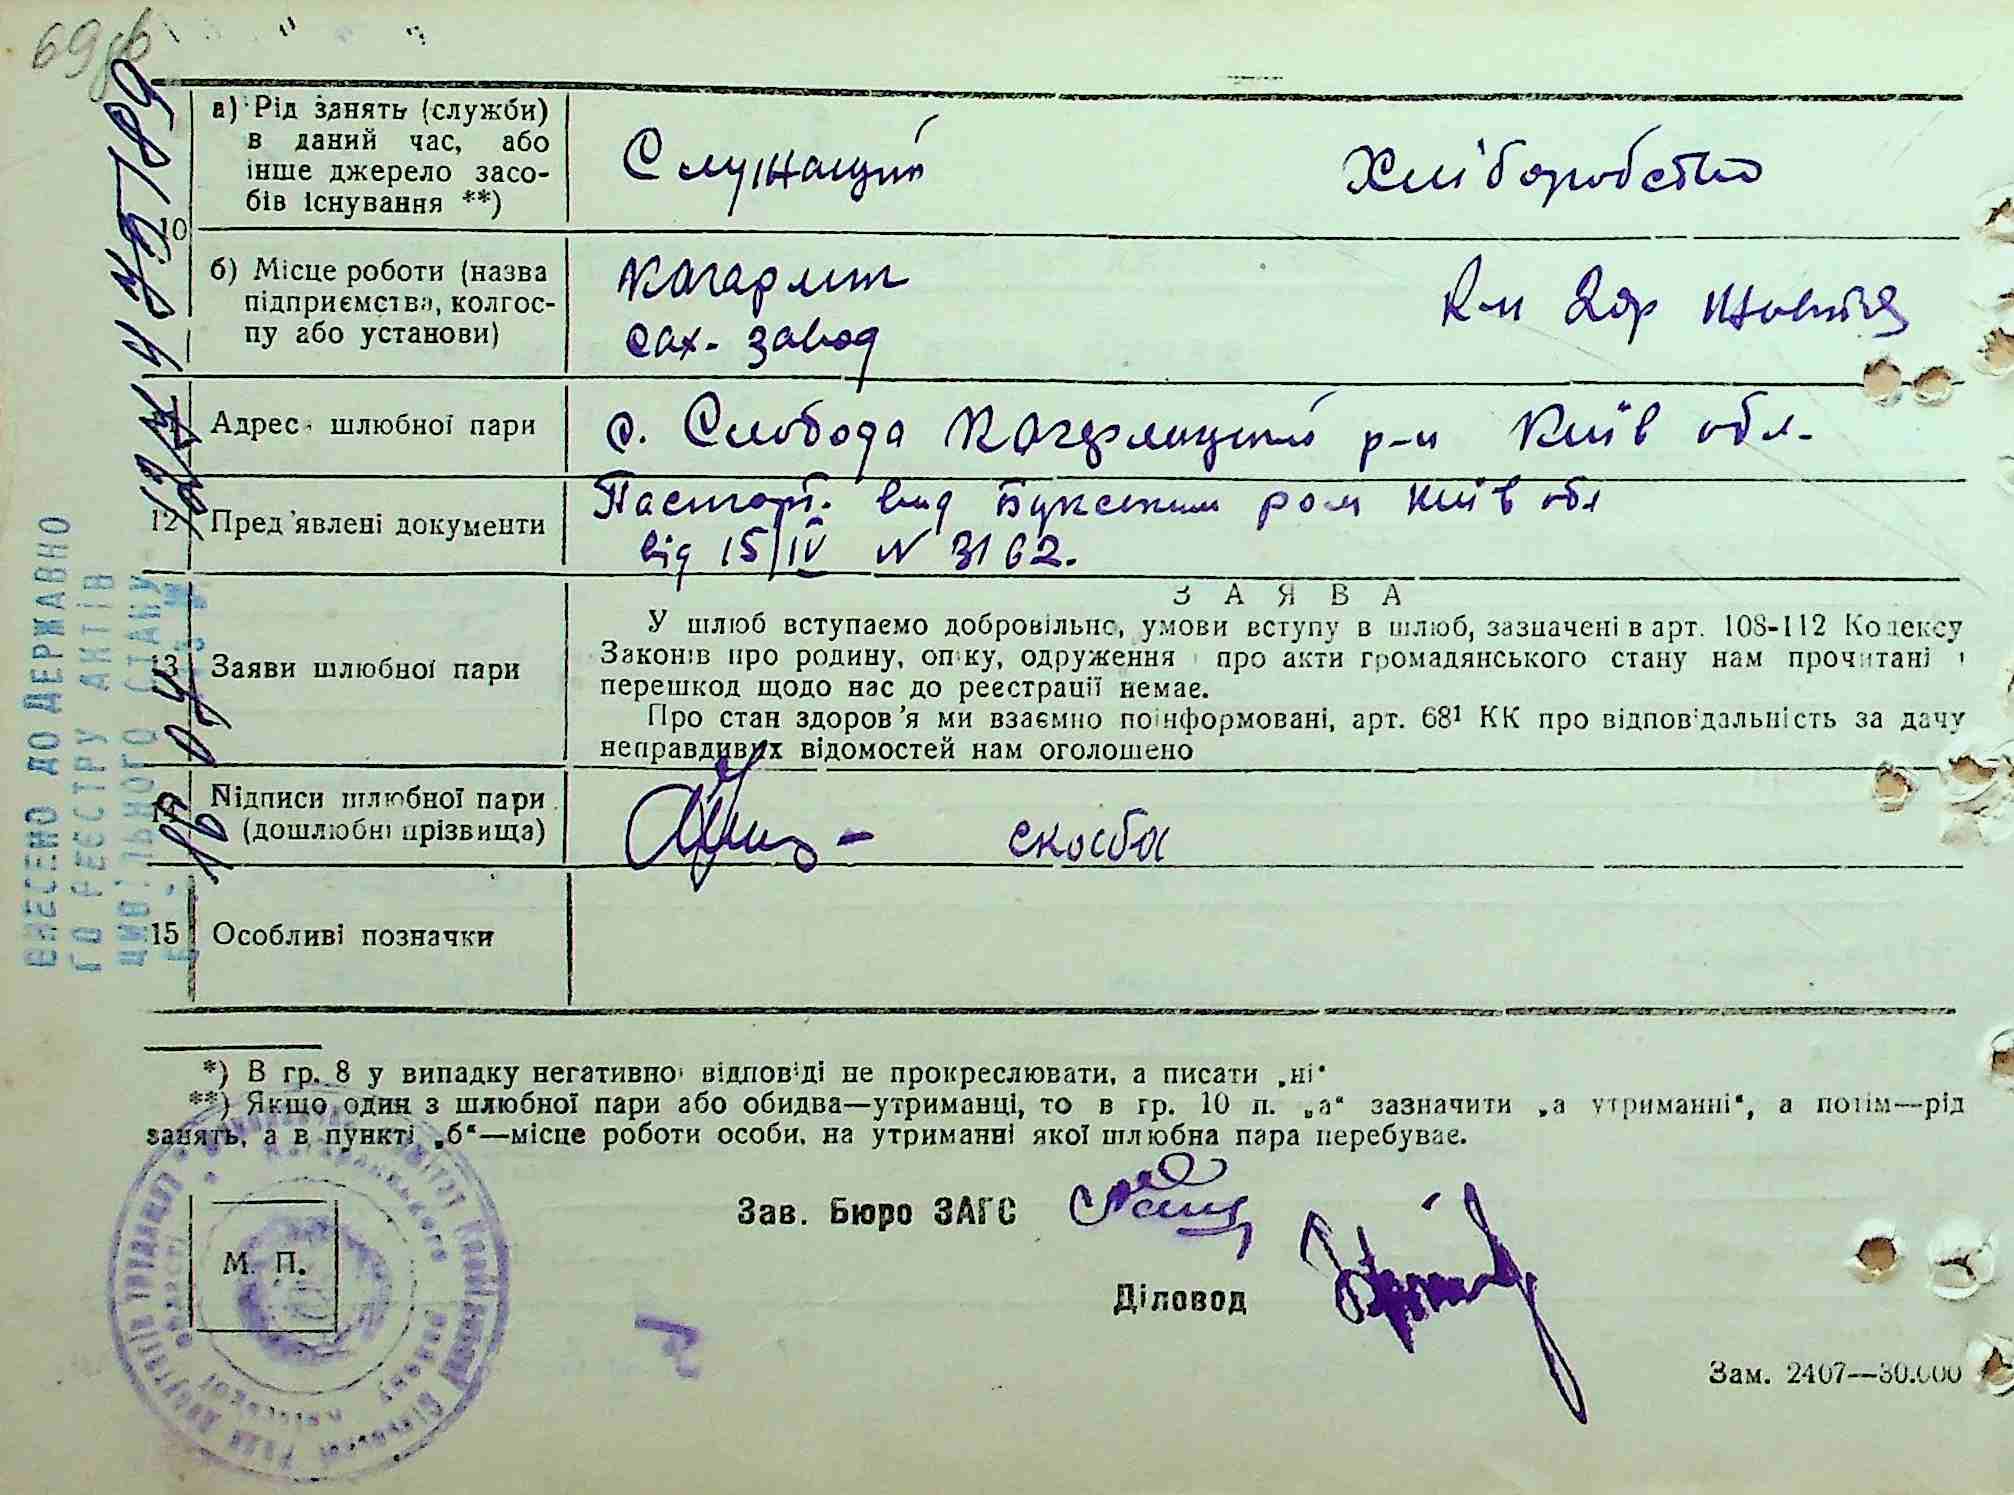 69зв
а) Рід занять (служби)
в даний час, або
інше джерело засо-
бів існування **)
Служащий
Хліборобство
10
б) Місце роботи (назва
підприємства, колгос-
пу або установи)
Кагарлик
сах. завод
Адрес шлюбної пари
с. Слобода Кагарлицький р-н Київ обл.
12
Пред'явлені документи
Паспорт. вид Букским ром Київ обл
від 15/IV N 3162.
13
Заяви шлюбної пари
ЗАЯВА
У шлюб вступаємо добровільно, умови вступу в шлюб, зазначені в арт. 108-112 Кодексу
Законів про родину, опіку, одруження і про акти громадянського стану нам прочитані і
перешкод щодо нас до реєстрації немає.
Про стан здоров'я ми взаємно поінформовані, арт. 68¹ КК про відповідальність за дачу
неправдивих відомостей нам оголошено
14
Підписи шлюбної пари
(дошлюбні прізвища)
скосба
15
Особливі позначки
*) В гр. 8 у випадку негативної відповіді не прокреслювати, а писати „ні“
**) Якщо один з шлюбної пари або обидва—утриманці, то в гр. 10 п. „а“ зазначити „а утриманні“, а потім—рід
занять, а в пункті „б“—місце роботи особи, на утриманні якої шлюбна пара перебуває.
Зав. Бюро ЗАГС
М. П.
Діловод
Зам. 2407—30.000
ВНЕСЕНО ДО ДЕРЖАВНО
ГО РЕЄСТРУ АКТІВ
ЦИВІЛЬНОГО СТАНУ